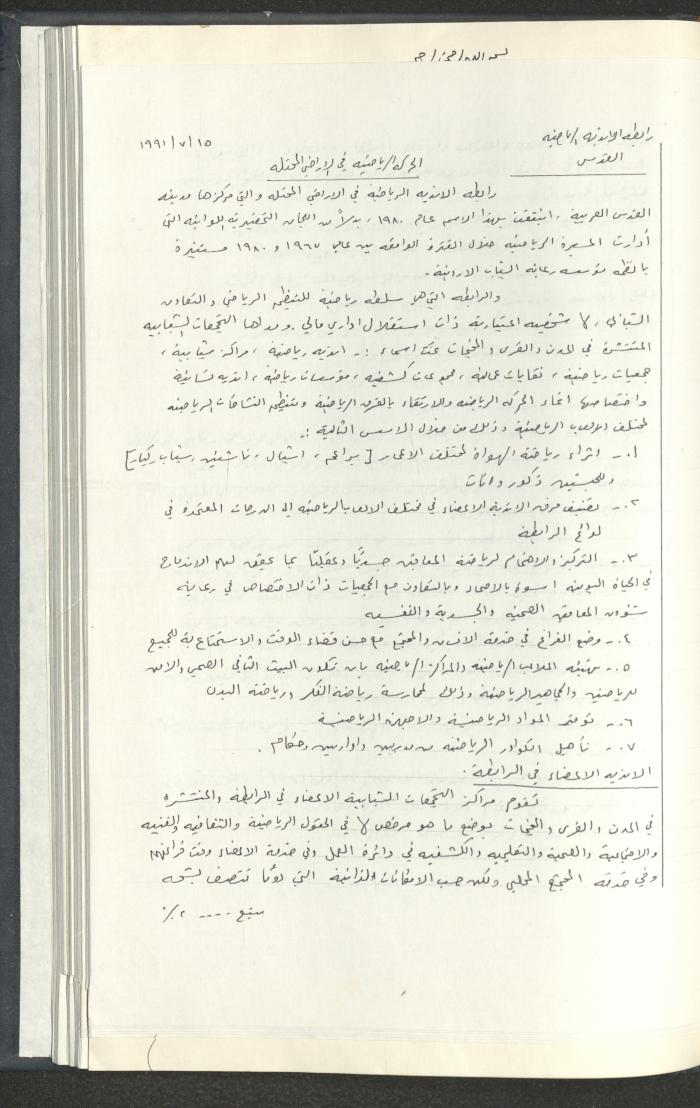 بسم الله الرحمن الرحيم
رابطة الاندية الرياضية
١٩٩١/٧/١٥
القدس
الحركة الرياضية في الاراضي المحتله
رابطه الاندية الرياضية في الاراضي المحتله والتي مركزها مدينه
القدس العربية ، انبثقت بهذا الاسم عام ١٩٨٠، بدلاً من اللجان التحضيرية اللوائيه التي
أدارت المسيرة الرياضيه خلال الفترة الواقعه بين عامي ١٩٦٧ و ١٩٨٠ مستنيرة
بانظمه مؤسسه رعاية الشباب الاردنية -
والرابطه التي هي سلطه رياضية للتنظيم الرياضي والتعاون
الشبابي ، لها شخصيه اعتبارية ذات استقلال اداري مالي . ومدها التجمعات الشبابيه
المنتشرة في المدن والقرى والمخيمات تحت اسماء :- انديه رياضية ، مراكز شبابية ،
جمعيات رياضية ، نقابات عمالية ، مجموعات كشفيه ، مؤسسات رياضية ، انديه نسائية
واختصاصها انماء الحركه الرياضيه والارتقاء بالفرق الرياضية وتنظيم النشاطات الرياضيه
لمختلف الالعاب الرياضية وذلك من خلال الاسس التالية :-
١. - اثراء رياضة الهواة لمختلف الاعمار [ براعم ، اشبال ، ناشئين ، شباب ، كبار ]
وللجنسين ذكور واناث
٢. - تصنيف فرق الاندية الاعضاء في مختلف الالعاب الرياضيه الى الدرجات المعتمدة في
لوائح الرابطة
٣. - التركيز والاهتمام لرياضة المعاقين جسديًا وعقليًا بما يحقق لهم الاندماج
في الحياة اليوميه اسوة بالاصحاء وبالتعاون مع الجمعيات ذات الاختصاص في رعاية
شؤون المعاقين الصحية والجسدية والنفسيه
٤. - وضع الفراغ في خدمة الانسان والمجتمع مع حسن قضاء الوقت والاستمتاع به للجميع
٥. - تهيئه الملاعب الرياضيه والمراكز الرياضيه بان تكون البيت الثاني الصحي والامن
للرياضيين والجماهير الرياضية وذلك لممارسة رياضة الفكر ورياضة البدن
٦. - توفير المواد الرياضية والاجهزة الرياضية
٧. - تأهيل الكوادر الرياضيه من مدربين واداريين وحكام .
الانديه الاعضاء في الرابطة .
تقوم مراكز التجمعات الشبابية الاعضاء في الرابطة والمنتشره
في المدن والقرى والمخيمات بوضع ما هو مرخص لها في الحقول الرياضية والثقافيه والفنيه
والاجتماعية والصحية والتعليميه والكشفيه في دائرة العمل وفي خدمة الاعضاء وقت فراغهم
وفي خدمة المجتمع المحلي ولكن حسب الامكانات الذاتية التي دومًا تتصف بشحه
يتبع ---- ٢ ./